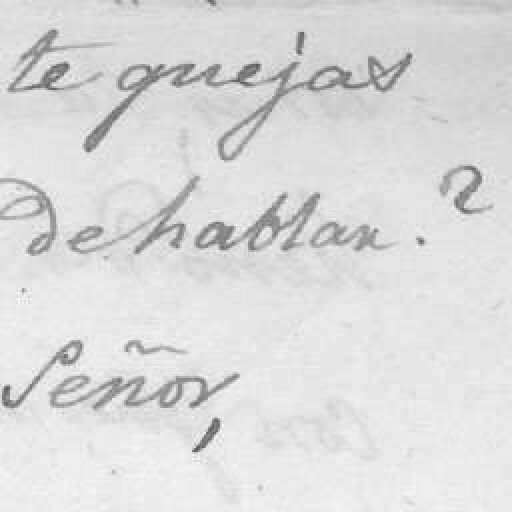 te quejas
de hablar.?
Señor,